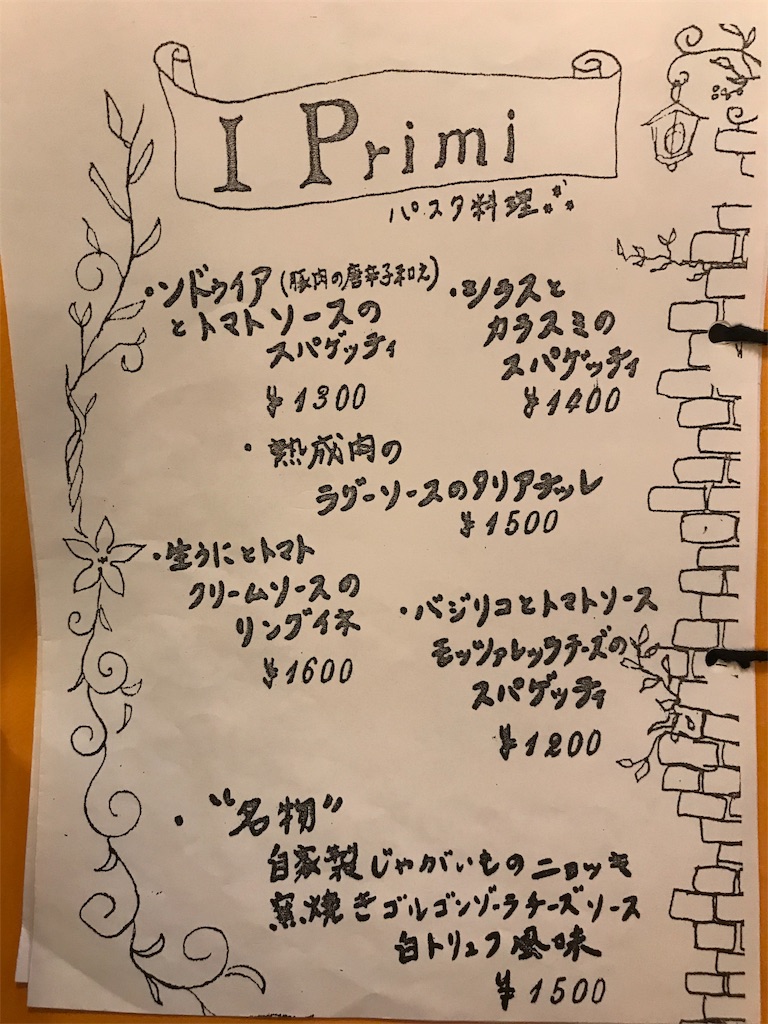 I Primi
パスタ料理
・ンドゥイア(豚肉の唐辛子和え)
とトマトソースの
スパゲッティ
¥1300
・シラスと
カラスミの
スパゲッティ
¥1400
・熟成肉の
ラグーソースのタリアテッレ
¥1500
・生うにとトマト
クリームソースの
リングイネ
¥1600
・バジリコとトマトソース
モッツァレッラチーズの
スパゲッティ
¥1200
・“名物”
自家製じゃがいものニョッキ
窯焼きゴルゴンゾーラチーズソース
白トリュフ風味
¥1500